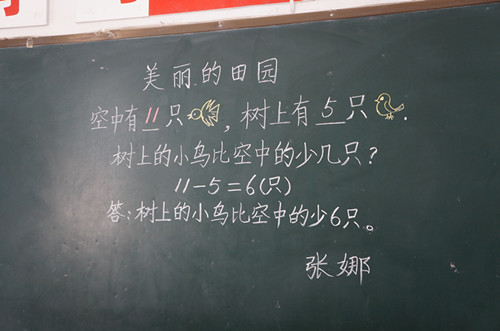 美丽的田园
空中有11只，树上有5只．
树上的小鸟比空中的少几只？
11-5=6(只)
答:树上的小鸟比空中的少6只。
张娜